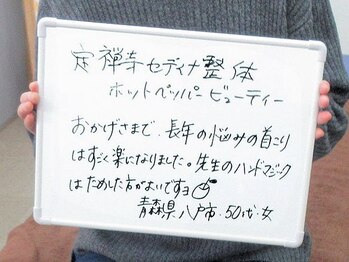 定禅寺セディナ整体
ホットペッパービューティー
おかげさまで、長年の悩みの首こり
はすごく楽になりました。先生のハンドマジーク
はためした方がよいですヨ
青森県八戸市・50代・女